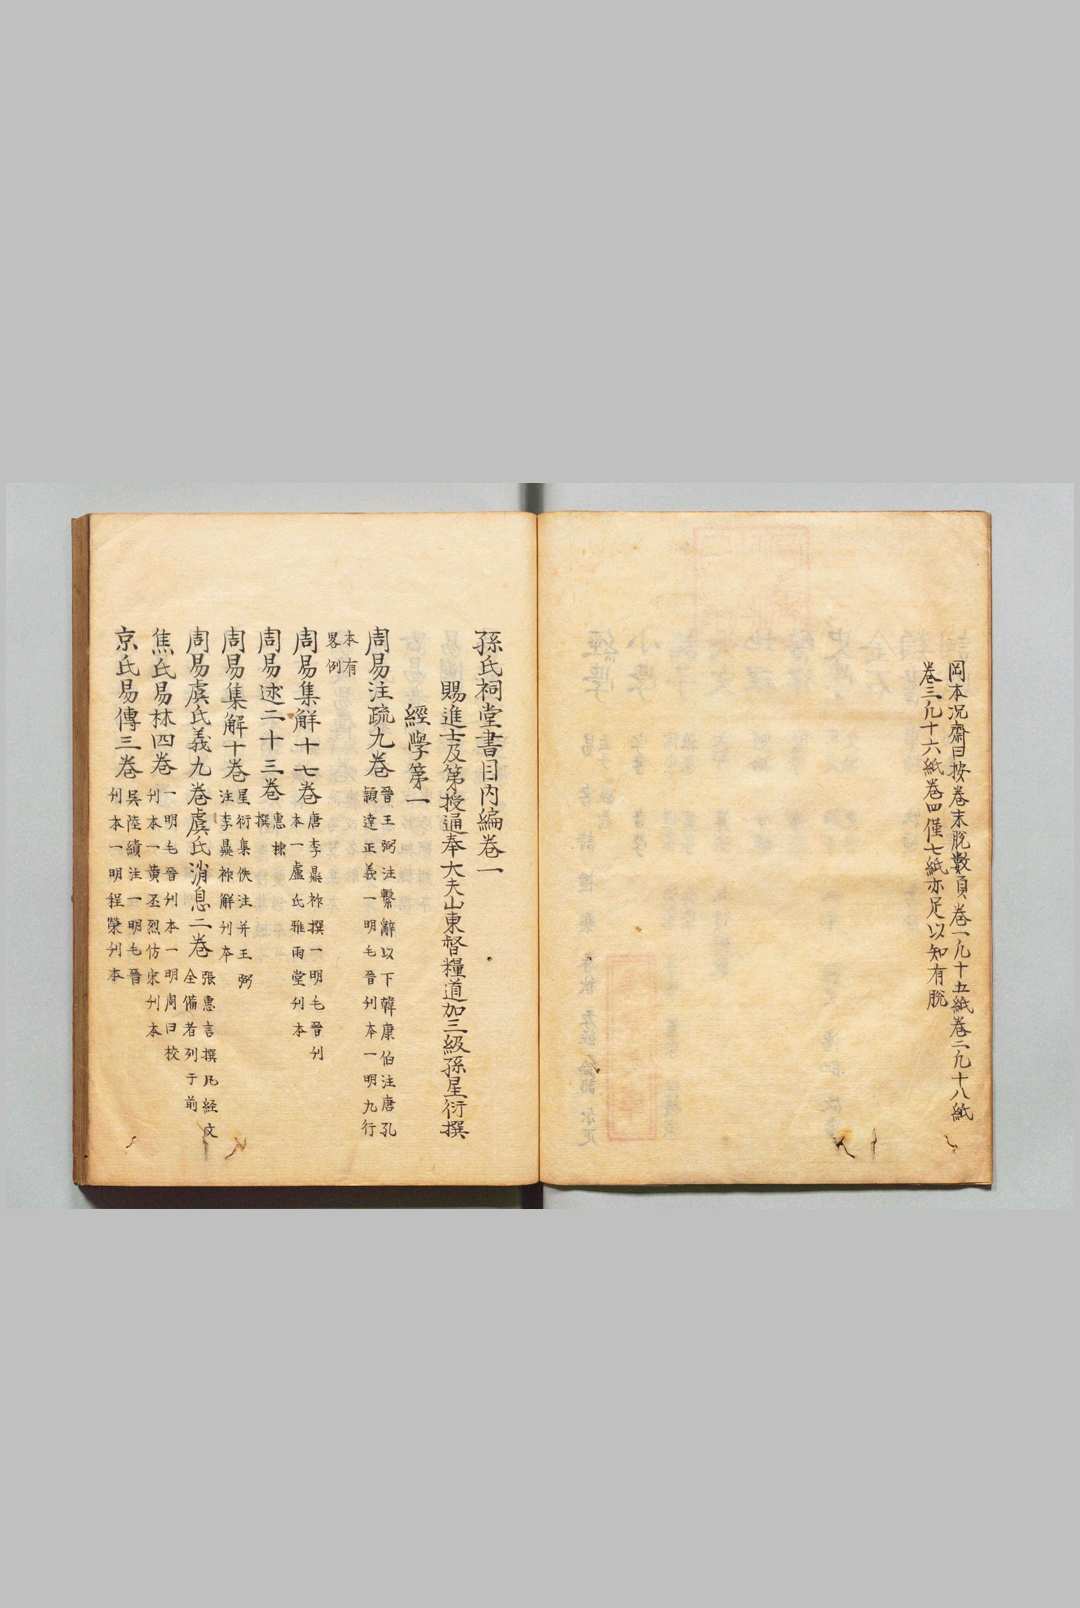 岡本況齋曰按卷末脫數頁卷一凡十五紙卷二凡十八紙
卷三凡十六紙卷四僅七紙亦足以知有脫
孫氏祠堂書目內編卷一
賜進士及第授通奉大夫山東督糧道加三級孫星衍撰
經學第一
周易注疏九卷 晉王弼注繫辭以下韓康伯注唐孔
穎達正義一明毛晉刋本一明九行
本有
畧例
周易集解十七卷 唐李鼎祚撰一明毛晉刋
本一盧氏雅雨堂刋本
周易述二十三卷 惠棟
撰
周易集解十卷 星衍集佚注并王弼
注李鼎祚解刋本
周易虞氏義九卷虞氏消息二卷 張惠言撰凡經文
全備者列于前
焦氏易林四卷 一明毛晉刋本一明周曰校
刋本一黃丕烈仿宋刋本
京氏易傳三卷 吳陸績注一明毛晉
刋本一明程榮刋本